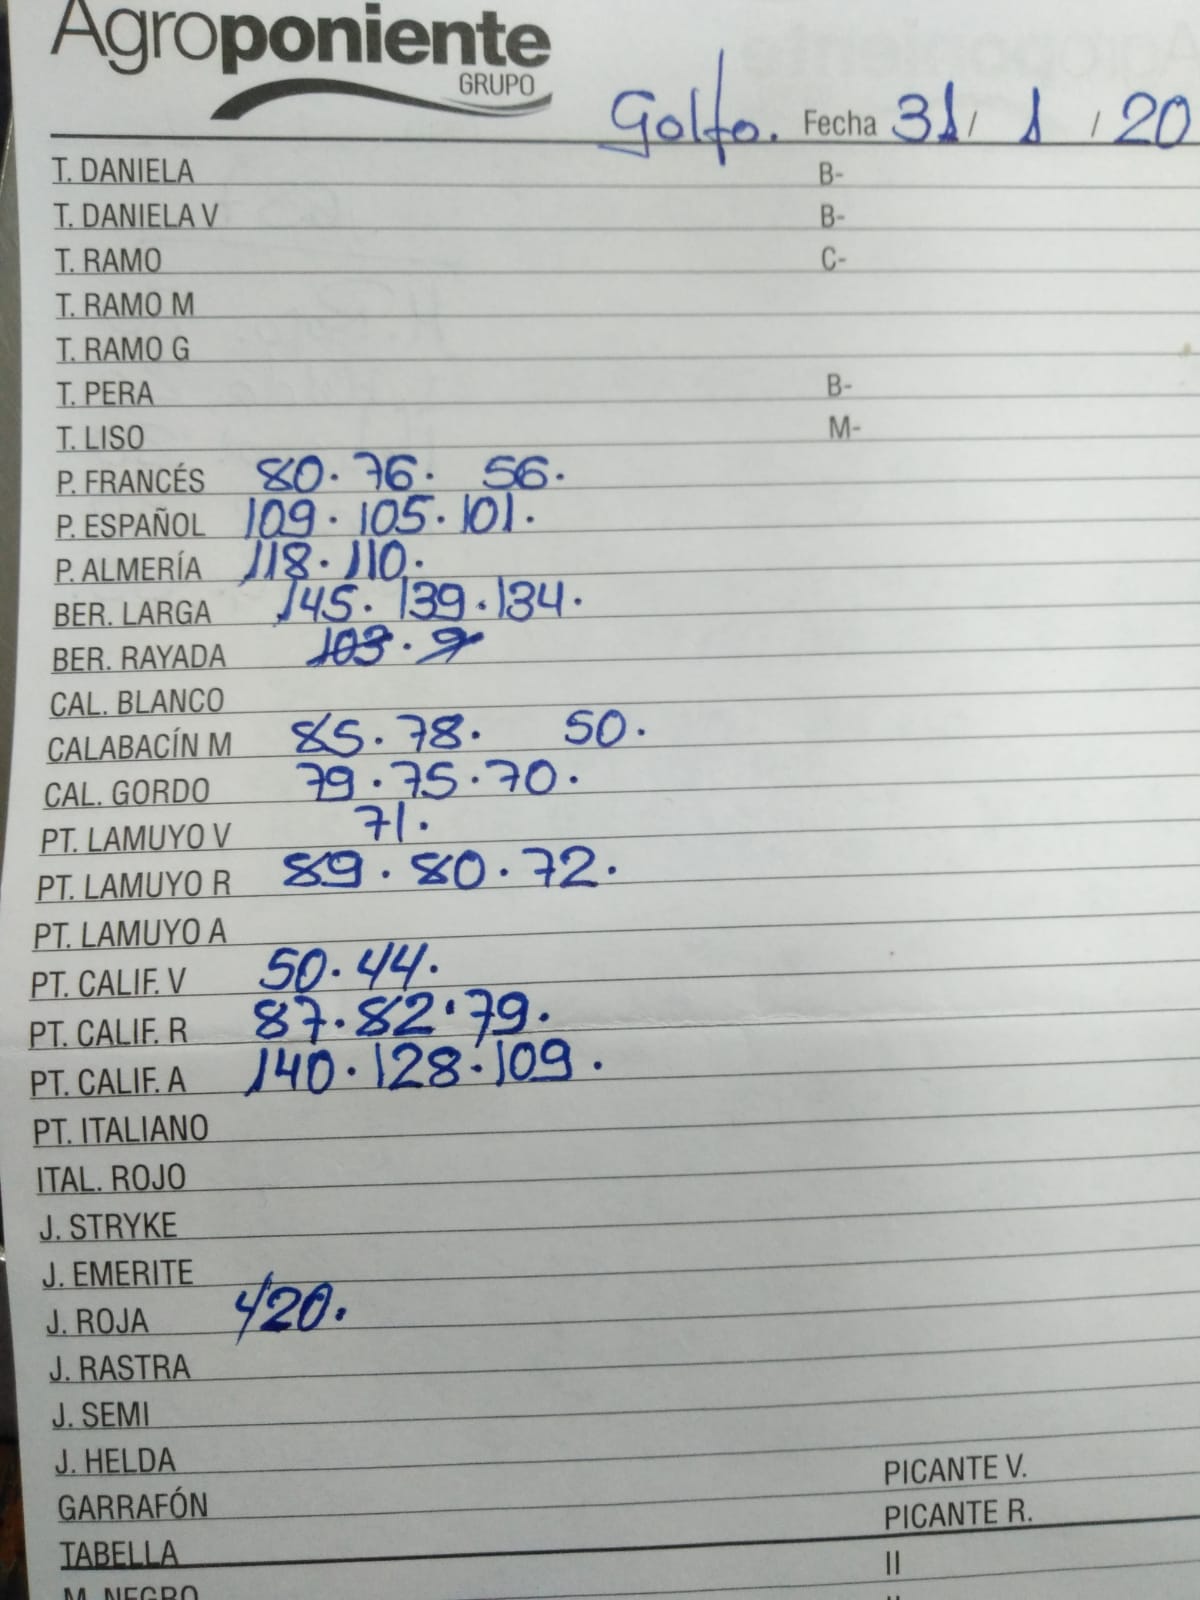 Agroponiente
GRUPO
Golfo. Fecha 31/ 1 / 20
T. DANIELA B-
T. DANIELA V B-
T. RAMO C-
T. RAMO M
T. RAMO G
T. PERA B-
T. LISO M-
P. FRANCÉS 80. 76. 56.
P. ESPAÑOL 109. 105. 101.
P. ALMERÍA 118. 110.
BER. LARGA 145. 139. 134.
BER. RAYADA 103. 9
CAL. BLANCO
CALABACÍN M 85. 78. 50.
CAL. GORDO 79. 75. 70.
PT. LAMUYO V 71.
PT. LAMUYO R 89. 80. 72.
PT. LAMUYO A
PT. CALIF. V 50. 44.
PT. CALIF. R 87. 82. 79.
PT. CALIF. A 140. 128. 109.
PT. ITALIANO
ITAL. ROJO
J. STRYKE
J. EMERITE
J. ROJA 420.
J. RASTRA
J. SEMI
J. HELDA PICANTE V.
GARRAFÓN PICANTE R.
TABELLA II
M. NEGRO